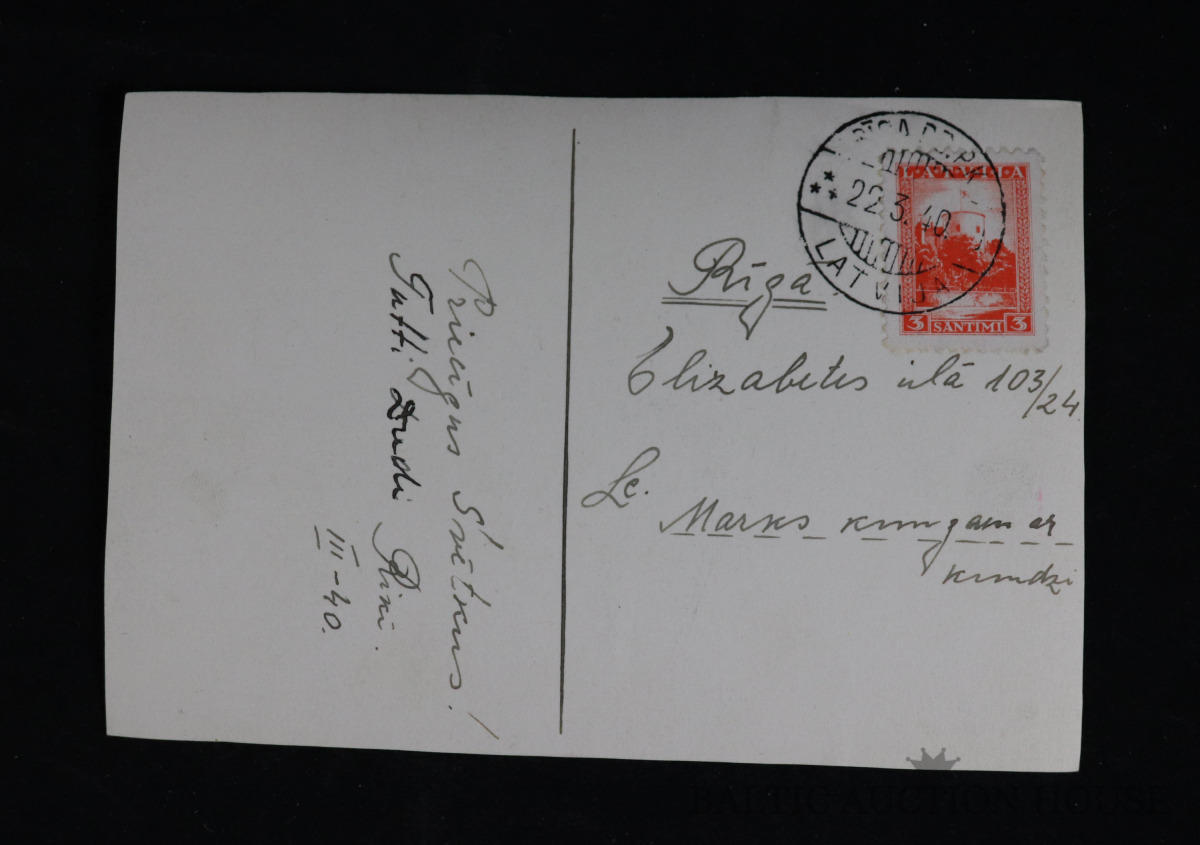 Priecīgus Svētkus!
Dudi
III-40.
RĪGA
22.3.40.
LATVIJA
LATVIJA
3 SANTIMI 3
Rīga
Elizabetes ielā 103/24
Marks kungam ar
kundzi
BALTIC AUCTION HOUSE